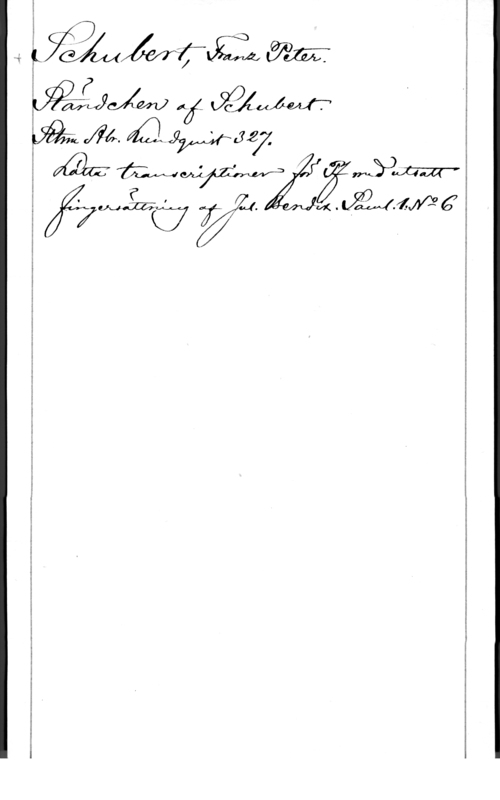 Schubert, Franz Peter.
Ständchen af Schubert.
Sthm Abr. Lundquist 327.
Lätta transcriptioner för Pf med utsatt
fingersättning af Jul. Bendix. Saml. 1. Nº 6